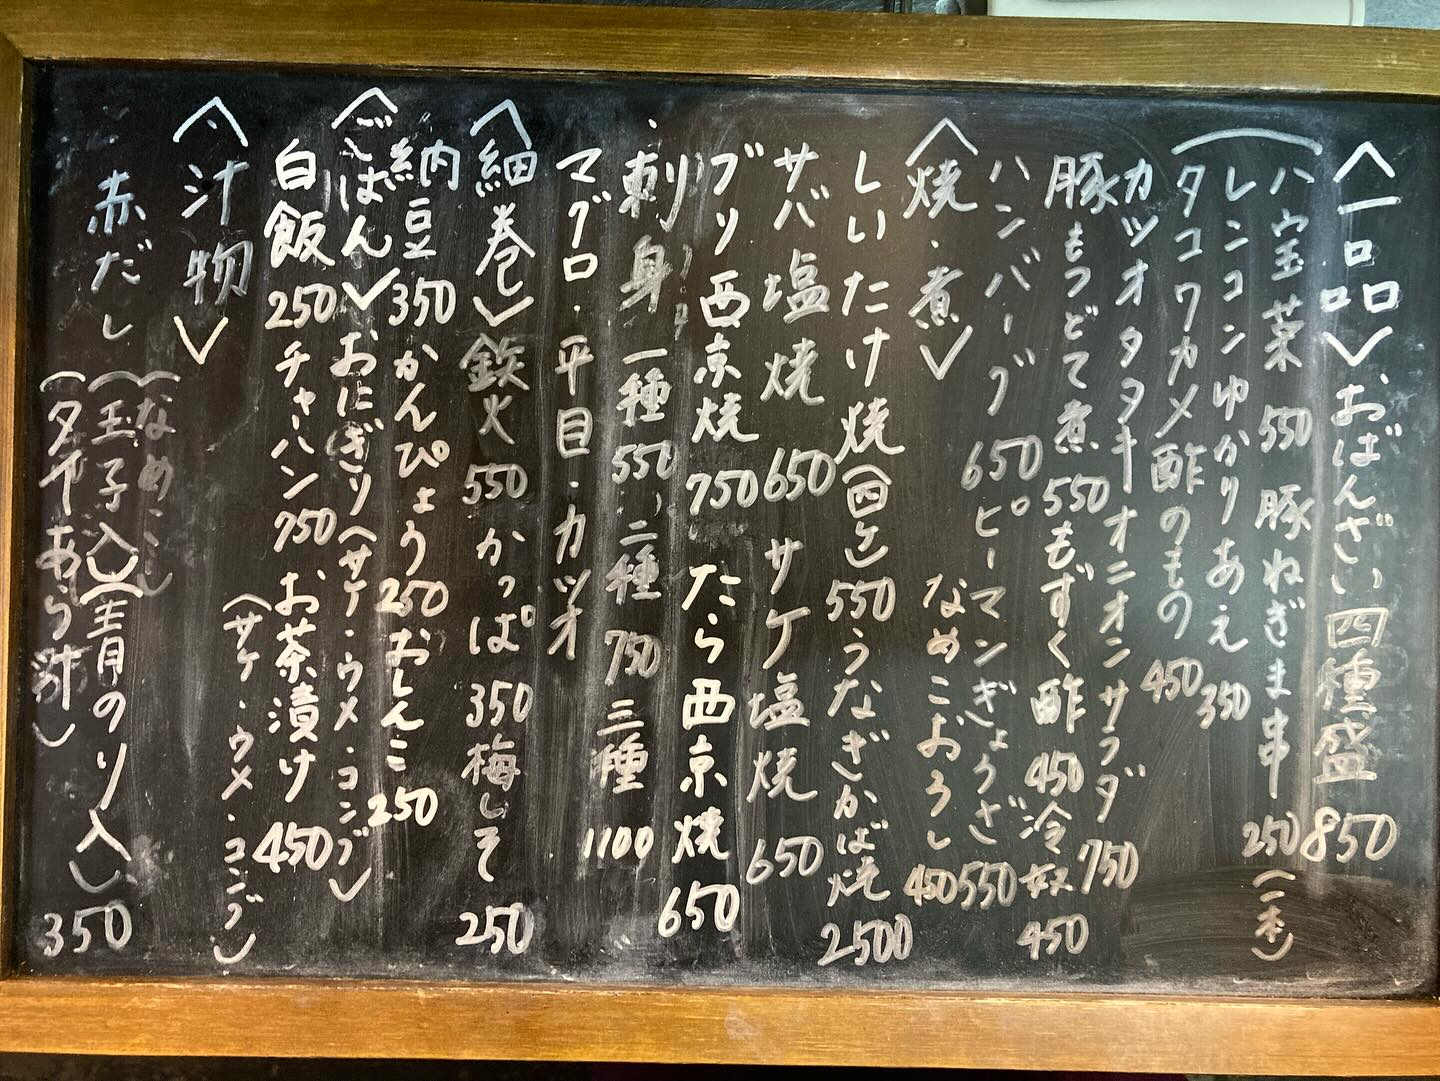 〈一品〉おばんざい四種盛 850
八宝菜 550 豚ねぎま串 250 (二本)
レンコンゆかりあえ 350
タコワカメ酢のもの 450
カツオタタキオニオンサラダ 750
豚もつどて煮 550 もずく酢 450 冷奴 450
ハンバーグ 650 ピーマンぎょうざ 550
〈焼・煮〉 なめこおろし 450
しいたけ焼(四ケ) 550 うなぎかば焼 2500
サバ塩焼 650 サケ塩焼 650
ブリ西京焼 750 たら西京焼 650
刺身 一種 550 二種 750 三種 1100
マグロ・平目・カツオ
〈細巻〉鉄火 550 かっぱ 350 梅しそ 250
納豆 350 かんぴょう 250 おしんこ 250
〈ごはん〉おにぎり〈サケ・ウメ・コンブ〉
白飯 250 チャーハン 750 お茶漬け 450
〈サケ・ウメ・コンブ〉
〈汁物〉
赤だし (なめこ)
(玉子入)(青のり入) 350
(タイあら汁)